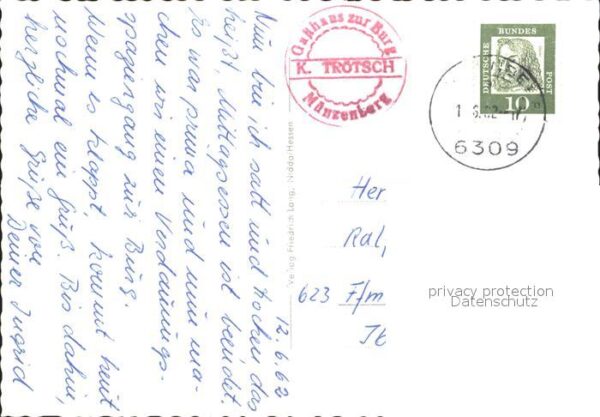 12.6.62
Nun bin ich satt und trocken das
heißt, Mittagessen ist beendet.
Es war prima und nun ma-
chen wir einen Verdauungs-
spaziergang zur Burg.
Wenn es klappt, kommt heut
nochmal ein Gruß. Bis dahin,
herzliche Grüße von
Deiner Ingrid
Gasthaus zur Burg
K. TROTSCH
Münzenberg
Verlag Friedrich Lang, Nidda/Hessen
DEUTSCHE
BUNDES
POST
10
6309
Her
Ral,
623 F/m
privacy protection
Datenschutz